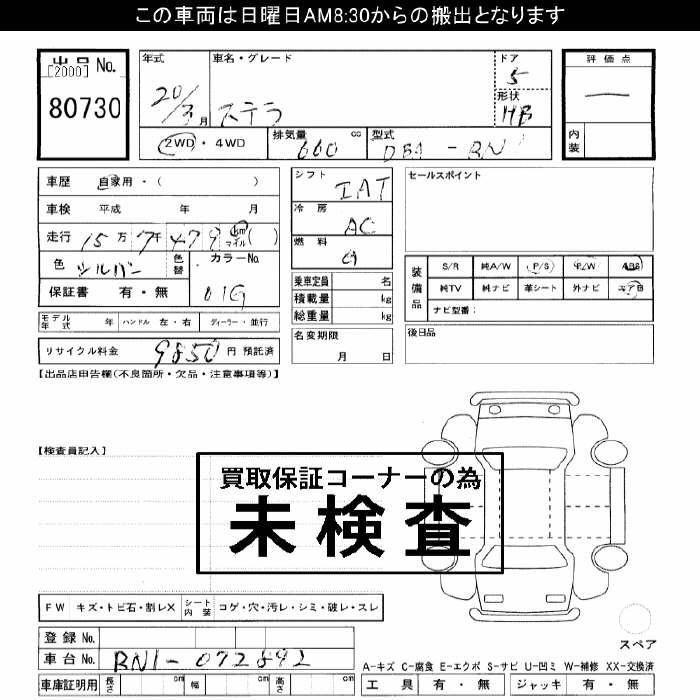 この車両は日曜日AM8:30からの搬出となります
出品 No.
[2000]
80730
年式
20/3月
車名・グレード
ステラ
ドア
5
形状
HB
評価点
内装
2WD・4WD
排気量 660 cc
型式 DBA-RN1
車歴 自家用・( )
車検 平成 年 月
走行 15万7千479 km マイル ( )
色 シルバー
色替
カラーNo. 01G
保証書 有・無
シフト IAT
冷房 AC
燃料 G
乗車定員 名
積載量 kg
総重量 kg
名変期限
月 日
セールスポイント
装備品
S/R 純A/W P/S P/W ABS
純TV 純ナビ 革シート 外ナビ エアB
ナビ型番:
後日品
モデル年式 年 ハンドル 左・右 ディーラー・並行
リサイクル料金 9850 円 預託済
【出品店申告欄(不良箇所・欠品・注意事項等)】
【検査員記入】
買取保証コーナーの為
未検査
FW キズ・トビ石・割レX シート内装 コゲ・穴・汚レ・シミ・破レ・スレ
登録 No.
車台 No. RN1-072892
スペア
A-キズ C-腐食 E-エクボ S-サビ U-凹ミ W-補修 XX-交換済
車庫証明用 長さ cm 幅 cm 高さ cm
工具 有・無 ジャッキ 有・無